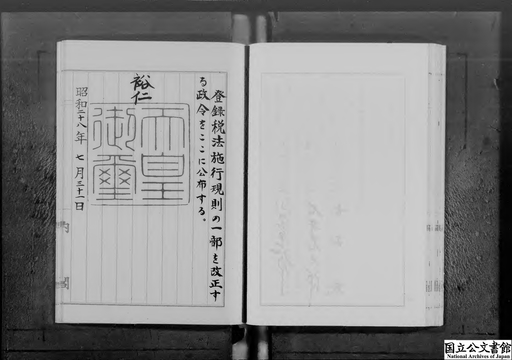 登録税法施行規則の一部を改正す
る政令をここに公布する。
裕仁
天皇
御璽
昭和二十八年 七月三十一日
国立公文書館
National Archives of Japan